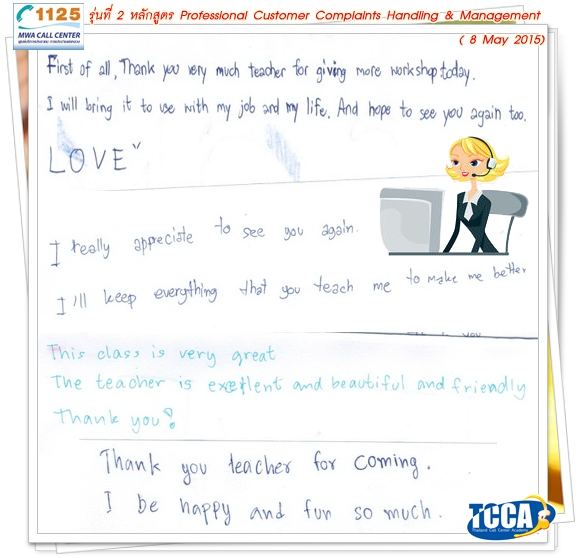 1125 รุ่นที่ 2 หลักสูตร Professional Customer Complaints Handling & Management
MWA CALL CENTER
( 8 May 2015)
First of all, Thank you very much teacher for giving more workshop today.
I will bring it to use with my job and my life. And hope to see you again too.
LOVE"
I really appreciate to see you again.
I'll keep everything that you teach me to make me better
This class is very great
The teacher is exellent and beautiful and friendly
Thank you!
Thank you teacher for coming.
I be happy and fun so much.
TCCA
Thailand Call Center Academy